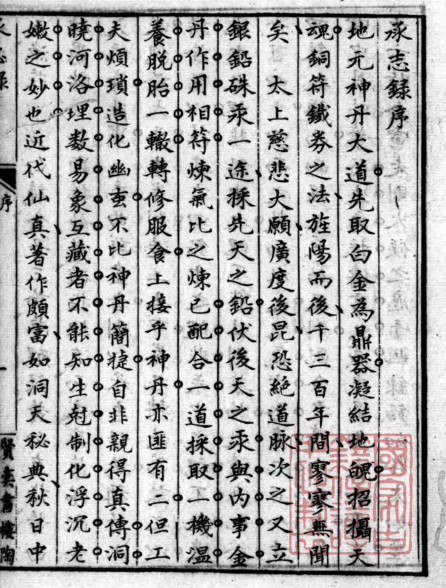 承志錄序
地元神丹大道先取白金為鼎器凝結地魄招攝天
魂銅符鐵券之法旌陽而後千三百年間寥寥無聞
矣　太上慈悲大願廣度後昆恐絕道脈次之又立
銀鉛硃汞一途採先天之鉛伏後天之汞與內事金
丹作用相符煉氣比之煉己配合一道採取一機溫
養脫胎一轍轉修服食上接乎神丹亦匪有二但工
夫煩瑣造化幽玄不比神丹簡捷自非親得真傳洞
曉河洛理數易象互藏者不能知生尅制化浮沉老
嫩之妙也近代仙真著作頗富如洞天秘典秋日中
承志錄
序
一